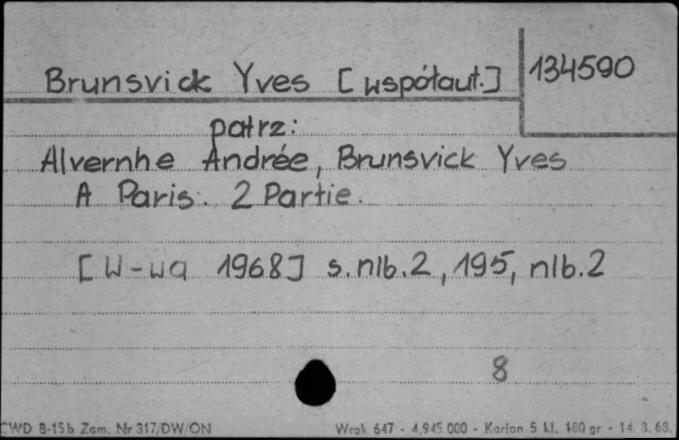 Brunsvick Yves [współaut.]
134590
patrz:
Alvernhe Andrée, Brunsvick Yves
A Paris. 2 Partie.
[W-wa 1968] s.nlb.2, 195, nlb.2
8
CWD B-15b Zam. Nr 317/DW/ON
Wrak 647 - 4,945 000 - Karton 5 kl. 180 gr - 14. 3. 68.